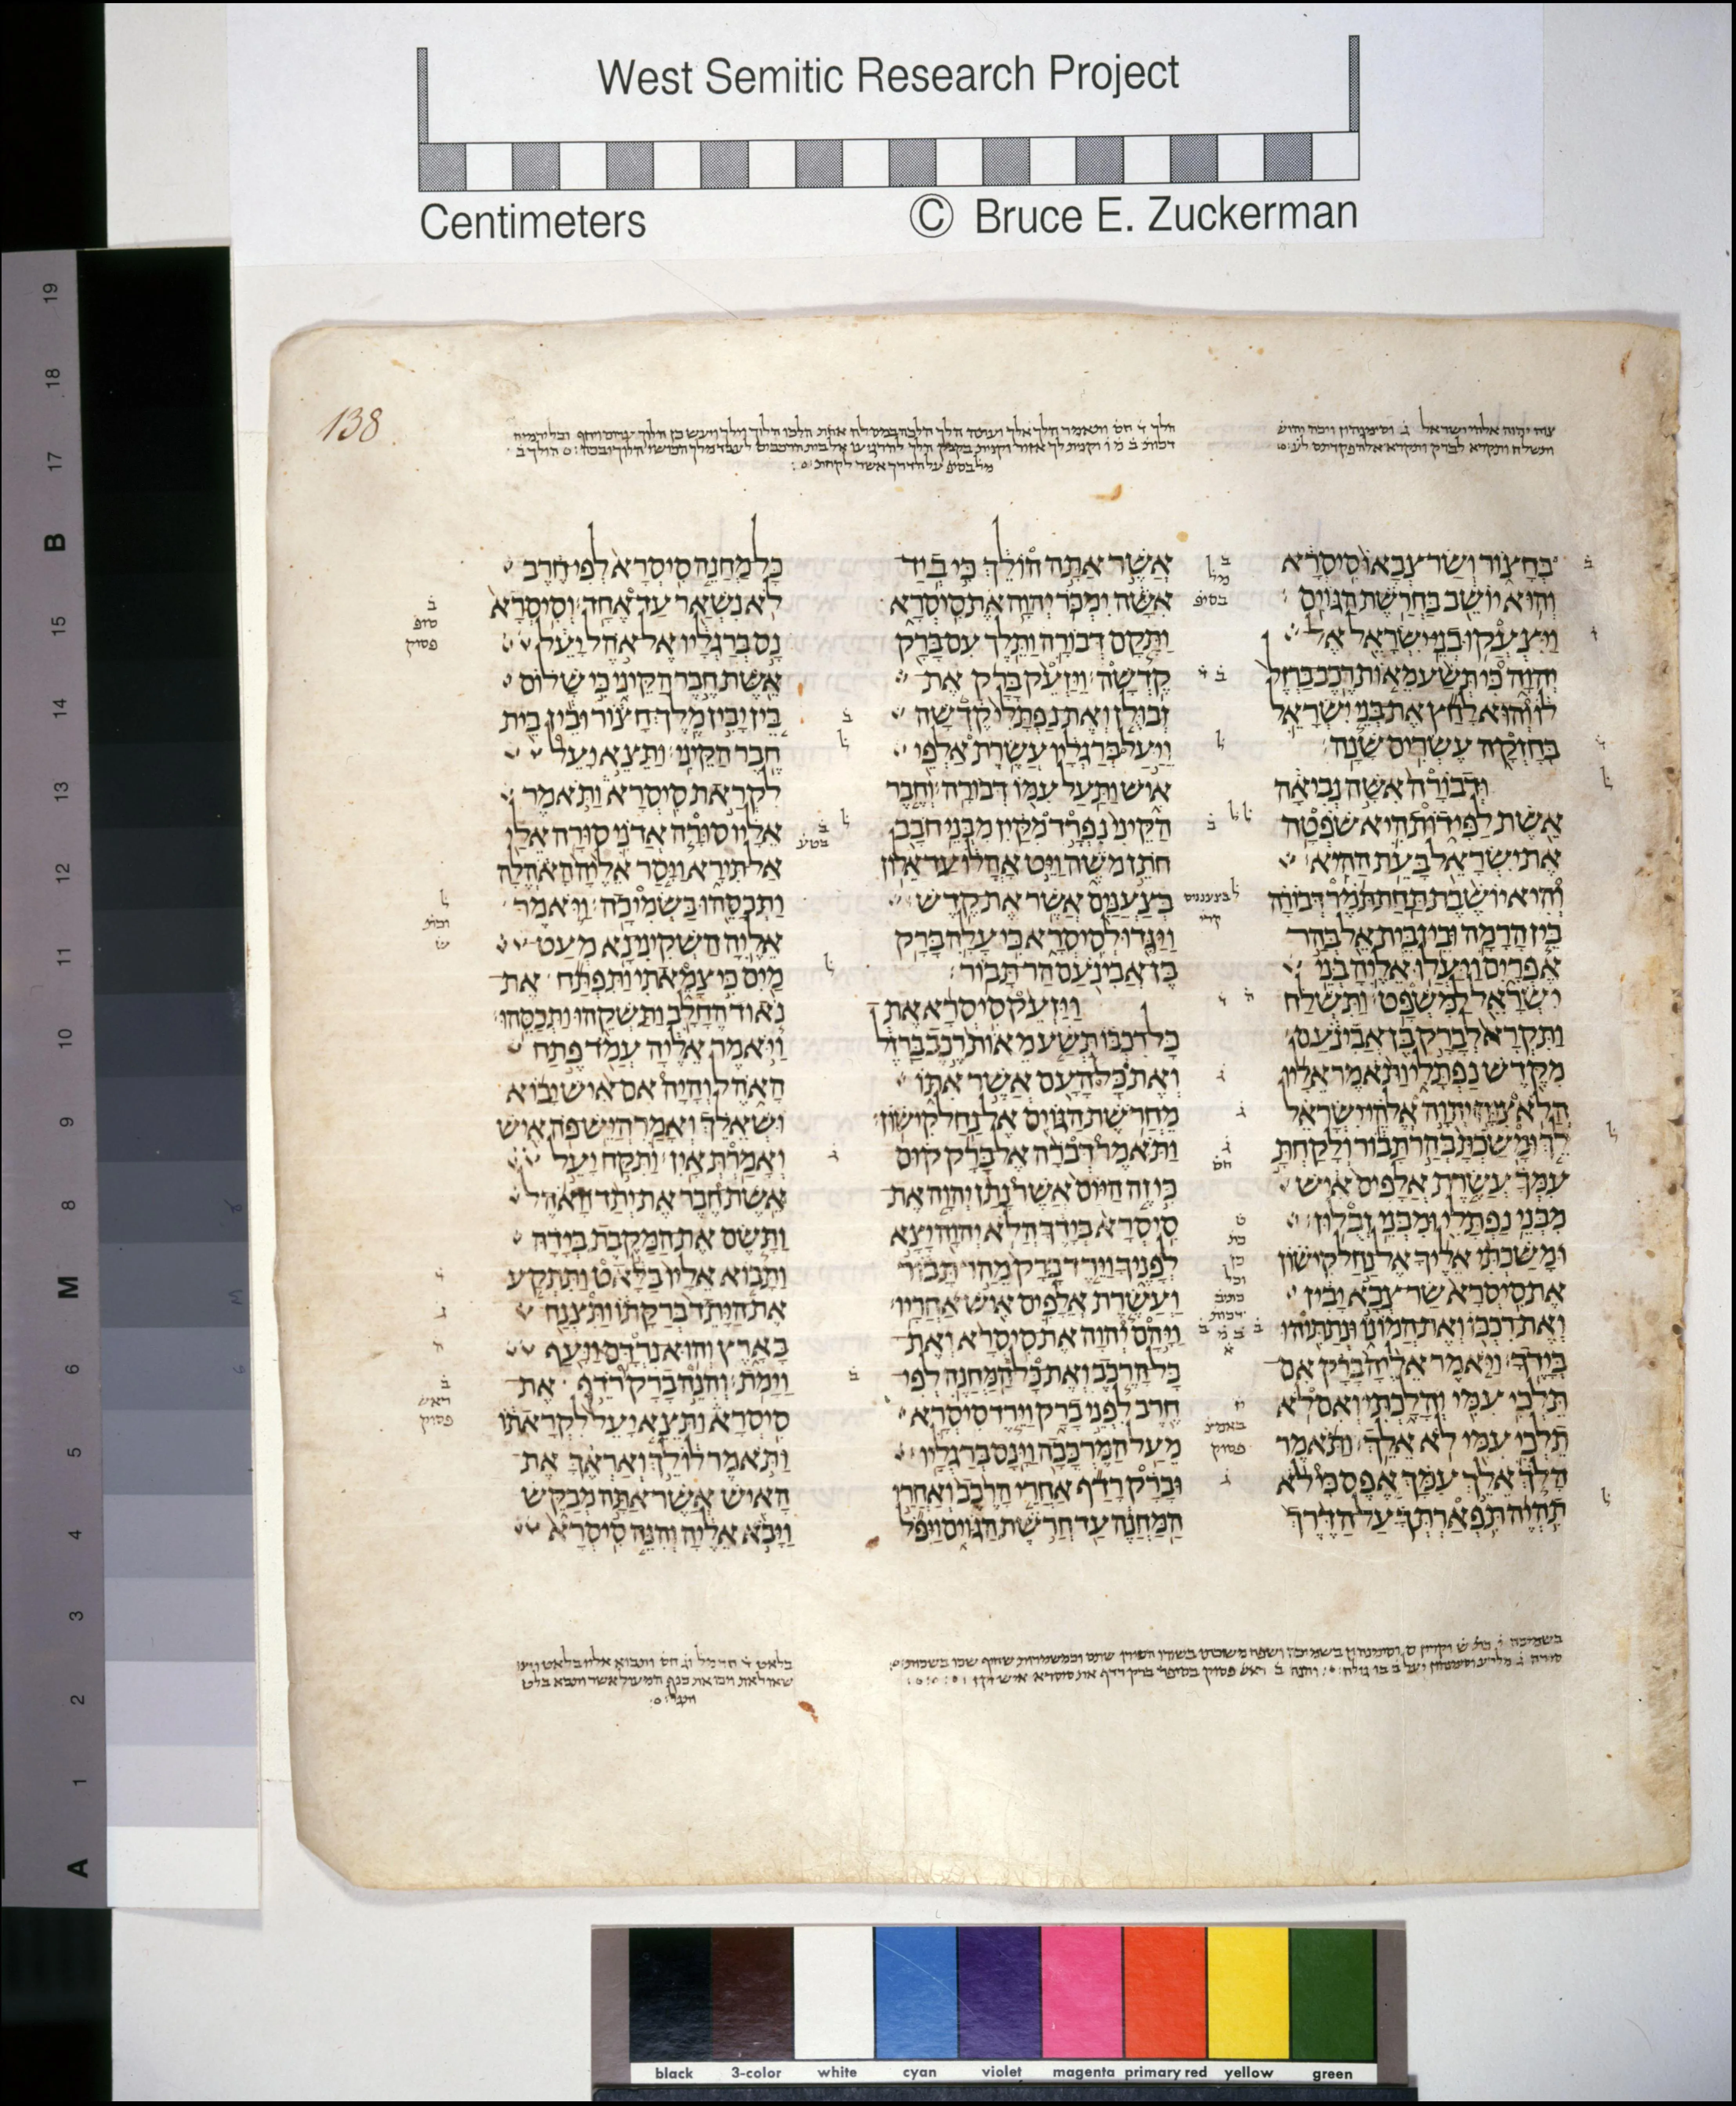 West Semitic Research Project
Centimeters
© Bruce E. Zuckerman
138
בְּחָצוֹר וְשַׂר צְבָאוֹ סִיסְרָא
וְהוּא יוֹשֵׁב בַּחֲרֹשֶׁת הַגּוֹיִם׃
וַיִּצְעֲקוּ בְנֵי יִשְׂרָאֵל אֶל
יְהוָה כִּי תְּשַׁע מֵאוֹת רֶכֶב בַּרְזֶל
לוֹ וְהוּא לָחַץ אֶת בְּנֵי יִשְׂרָאֵל
בְּחָזְקָה עֶשְׂרִים שָׁנָה׃
וּדְבוֹרָה אִשָּׁה נְבִיאָה
אֵשֶׁת לַפִּידוֹת הִיא שֹׁפְטָה
אֶת יִשְׂרָאֵל בָּעֵת הַהִיא׃
וְהִיא יוֹשֶׁבֶת תַּחַת תֹּמֶר דְּבוֹרָה
בֵּין הָרָמָה וּבֵין בֵּית אֵל בְּהַר
אֶפְרָיִם וַיַּעֲלוּ אֵלֶיהָ בְּנֵי
יִשְׂרָאֵל לַמִּשְׁפָּט׃ וַתִּשְׁלַח
וַתִּקְרָא לְבָרָק בֶּן אֲבִינֹעַם
מִקֶּדֶשׁ נַפְתָּלִי וַתֹּאמֶר אֵלָיו
הֲלֹא צִוָּה יְהוָה אֱלֹהֵי יִשְׂרָאֵל
לֵךְ וּמָשַׁכְתָּ בְּהַר תָּבוֹר וְלָקַחְתָּ
עִמְּךָ עֲשֶׂרֶת אֲלָפִים אִישׁ
מִבְּנֵי נַפְתָּלִי וּמִבְּנֵי זְבֻלוּן׃
וּמָשַׁכְתִּי אֵלֶיךָ אֶל נַחַל קִישׁוֹן
אֶת סִיסְרָא שַׂר צְבָא יָבִין
וְאֶת רִכְבּוֹ וְאֶת הֲמוֹנוֹ וּנְתַתִּיהוּ
בְּיָדֶךָ׃ וַיֹּאמֶר אֵלֶיהָ בָּרָק אִם
תֵּלְכִי עִמִּי וְהָלָכְתִּי וְאִם לֹא
תֵלְכִי עִמִּי לֹא אֵלֵךְ׃ וַתֹּאמֶר
הָלֹךְ אֵלֵךְ עִמָּךְ אֶפֶס כִּי לֹא
תִהְיֶה תִּפְאַרְתְּךָ עַל הַדֶּרֶךְ
אֲשֶׁר אַתָּה הוֹלֵךְ כִּי בְיַד
אִשָּׁה יִמְכֹּר יְהוָה אֶת סִיסְרָא
וַתָּקָם דְּבוֹרָה וַתֵּלֶךְ עִם בָּרָק
קֶדְשָׁה׃ וַיַּזְעֵק בָּרָק אֶת
זְבוּלֻן וְאֶת נַפְתָּלִי קֶדְשָׁה
וַיַּעַל בְּרַגְלָיו עֲשֶׂרֶת אַלְפֵי
אִישׁ וַתַּעַל עִמּוֹ דְּבוֹרָה׃ וְחֶבֶר
הַקֵּינִי נִפְרָד מִקַּיִן מִבְּנֵי חֹבָב
חֹתֵן מֹשֶׁה וַיֵּט אָהֳלוֹ עַד אֵלוֹן
בְּצַעֲנַנִּים אֲשֶׁר אֶת קֶדֶשׁ׃
וַיַּגִּדוּ לְסִיסְרָא כִּי עָלָה בָּרָק
בֶּן אֲבִינֹעַם הַר תָּבוֹר׃
וַיַּזְעֵק סִיסְרָא אֶת
כָּל רִכְבּוֹ תְּשַׁע מֵאוֹת רֶכֶב בַּרְזֶל
וְאֶת כָּל הָעָם אֲשֶׁר אִתּוֹ
מֵחֲרֹשֶׁת הַגּוֹיִם אֶל נַחַל קִישׁוֹן׃
וַתֹּאמֶר דְּבֹרָה אֶל בָּרָק קוּם
כִּי זֶה הַיּוֹם אֲשֶׁר נָתַן יְהוָה אֶת
סִיסְרָא בְּיָדֶךָ הֲלֹא יְהוָה יָצָא
לְפָנֶיךָ וַיֵּרֶד בָּרָק מֵהַר תָּבוֹר
וַעֲשֶׂרֶת אֲלָפִים אִישׁ אַחֲרָיו׃
וַיָּהָם יְהוָה אֶת סִיסְרָא וְאֶת
כָּל הָרֶכֶב וְאֶת כָּל הַמַּחֲנֶה לְפִי
חֶרֶב לִפְנֵי בָרָק וַיֵּרֶד סִיסְרָא
מֵעַל הַמֶּרְכָּבָה וַיָּנָס בְּרַגְלָיו׃
וּבָרָק רָדַף אַחֲרֵי הָרֶכֶב וְאַחֲרֵי
הַמַּחֲנֶה עַד חֲרֹשֶׁת הַגּוֹיִם וַיִּפֹּל
כָּל מַחֲנֵה סִיסְרָא לְפִי חֶרֶב
לֹא נִשְׁאַר עַד אֶחָד׃ וְסִיסְרָא
נָס בְּרַגְלָיו אֶל אֹהֶל יָעֵל
אֵשֶׁת חֶבֶר הַקֵּינִי כִּי שָׁלוֹם
בֵּין יָבִין מֶלֶךְ חָצוֹר וּבֵין בֵּית
חֶבֶר הַקֵּינִי׃ וַתֵּצֵא יָעֵל
לִקְרַאת סִיסְרָא וַתֹּאמֶר
אֵלָיו סוּרָה אֲדֹנִי סוּרָה אֵלַי
אַל תִּירָא וַיָּסַר אֵלֶיהָ הָאֹהֱלָה
וַתְּכַסֵּהוּ בַּשְּׂמִיכָה׃ וַיֹּאמֶר
אֵלֶיהָ הַשְׁקִינִי נָא מְעַט
מַיִם כִּי צָמֵאתִי וַתִּפְתַּח אֶת
נֹאוד הֶחָלָב וַתַּשְׁקֵהוּ וַתְּכַסֵּהוּ׃
וַיֹּאמֶר אֵלֶיהָ עֲמֹד פֶּתַח
הָאֹהֶל וְהָיָה אִם אִישׁ יָבוֹא
וּשְׁאֵלֵךְ וְאָמַר הֲיֵשׁ פֹּה אִישׁ
וְאָמַרְתְּ אָיִן׃ וַתִּקַּח יָעֵל
אֵשֶׁת חֶבֶר אֶת יְתַד הָאֹהֶל
וַתָּשֶׂם אֶת הַמַּקֶּבֶת בְּיָדָהּ
וַתָּבוֹא אֵלָיו בַּלָּאט וַתִּתְקַע
אֶת הַיָּתֵד בְּרַקָּתוֹ וַתִּצְנַח
בָּאָרֶץ וְהוּא נִרְדָּם וַיָּעַף
וַיָּמֹת׃ וְהִנֵּה בָרָק רֹדֵף אֶת
סִיסְרָא וַתֵּצֵא יָעֵל לִקְרָאתוֹ
וַתֹּאמֶר לוֹ לֵךְ וְאַרְאֶךָּ אֶת
הָאִישׁ אֲשֶׁר אַתָּה מְבַקֵּשׁ
וַיָּבֹא אֵלֶיהָ וְהִנֵּה סִיסְרָא
19
18
17
B
16
15
14
13
12
11
10
9
8
M
7
6
5
4
3
2
1
A
black 3-color white cyan violet magenta primary red yellow green